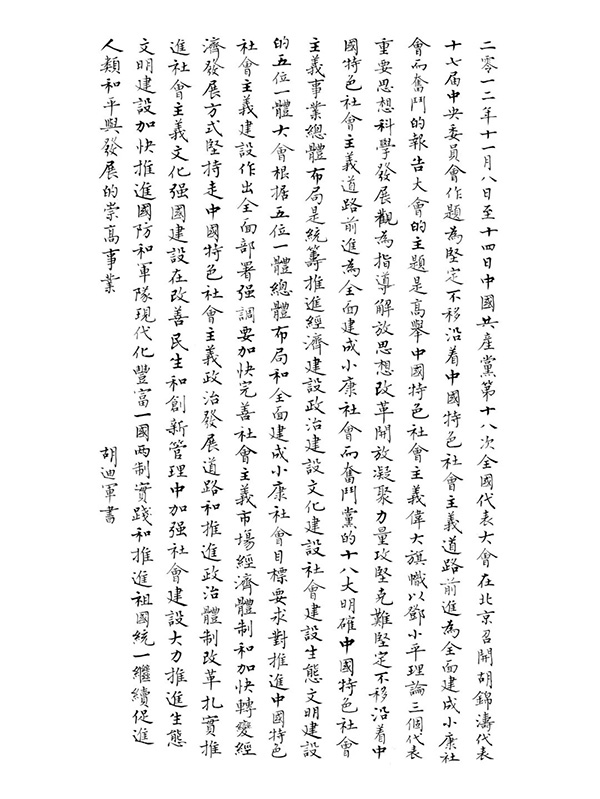 二零一二年十一月八日至十四日中國共産黨第十八次全國代表大會在北京召開胡錦濤代表
十七届中央委員會作題為堅定不移沿着中國特色社會主義道路前進為全面建成小康社
會而奮鬥的報告大會的主題是高舉中國特色社會主義偉大旗幟以鄧小平理論三個代表
重要思想科學發展觀為指導解放思想改革開放凝聚力量攻堅克難堅定不移沿着中
國特色社會主義道路前進為全面建成小康社會而奮鬥黨的十八大明確中國特色社會
主義事業總體布局是統籌推進經濟建設政治建設文化建設社會建設生態文明建設
的五位一體大會根据五位一體總體布局和全面建成小康社會目標要求對推進中國特色
社會主義建設作出全面部署强調要加快完善社會主義市場經濟體制和加快轉變經
濟發展方式堅持走中國特色社會主義政治發展道路和推進政治體制改革扎實推
進社會主義文化强國建設在改善民生和創新管理中加强社會建設大力推進生態
文明建設加快推進國防和軍隊現代化豐富一國兩制實踐和推進祖國統一繼續促進
人類和平與發展的崇高事業
胡迪軍書